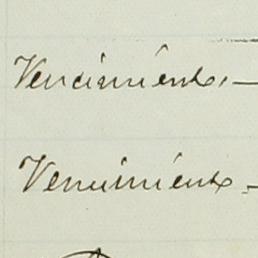 Vencimiento. —
Vencimiento —